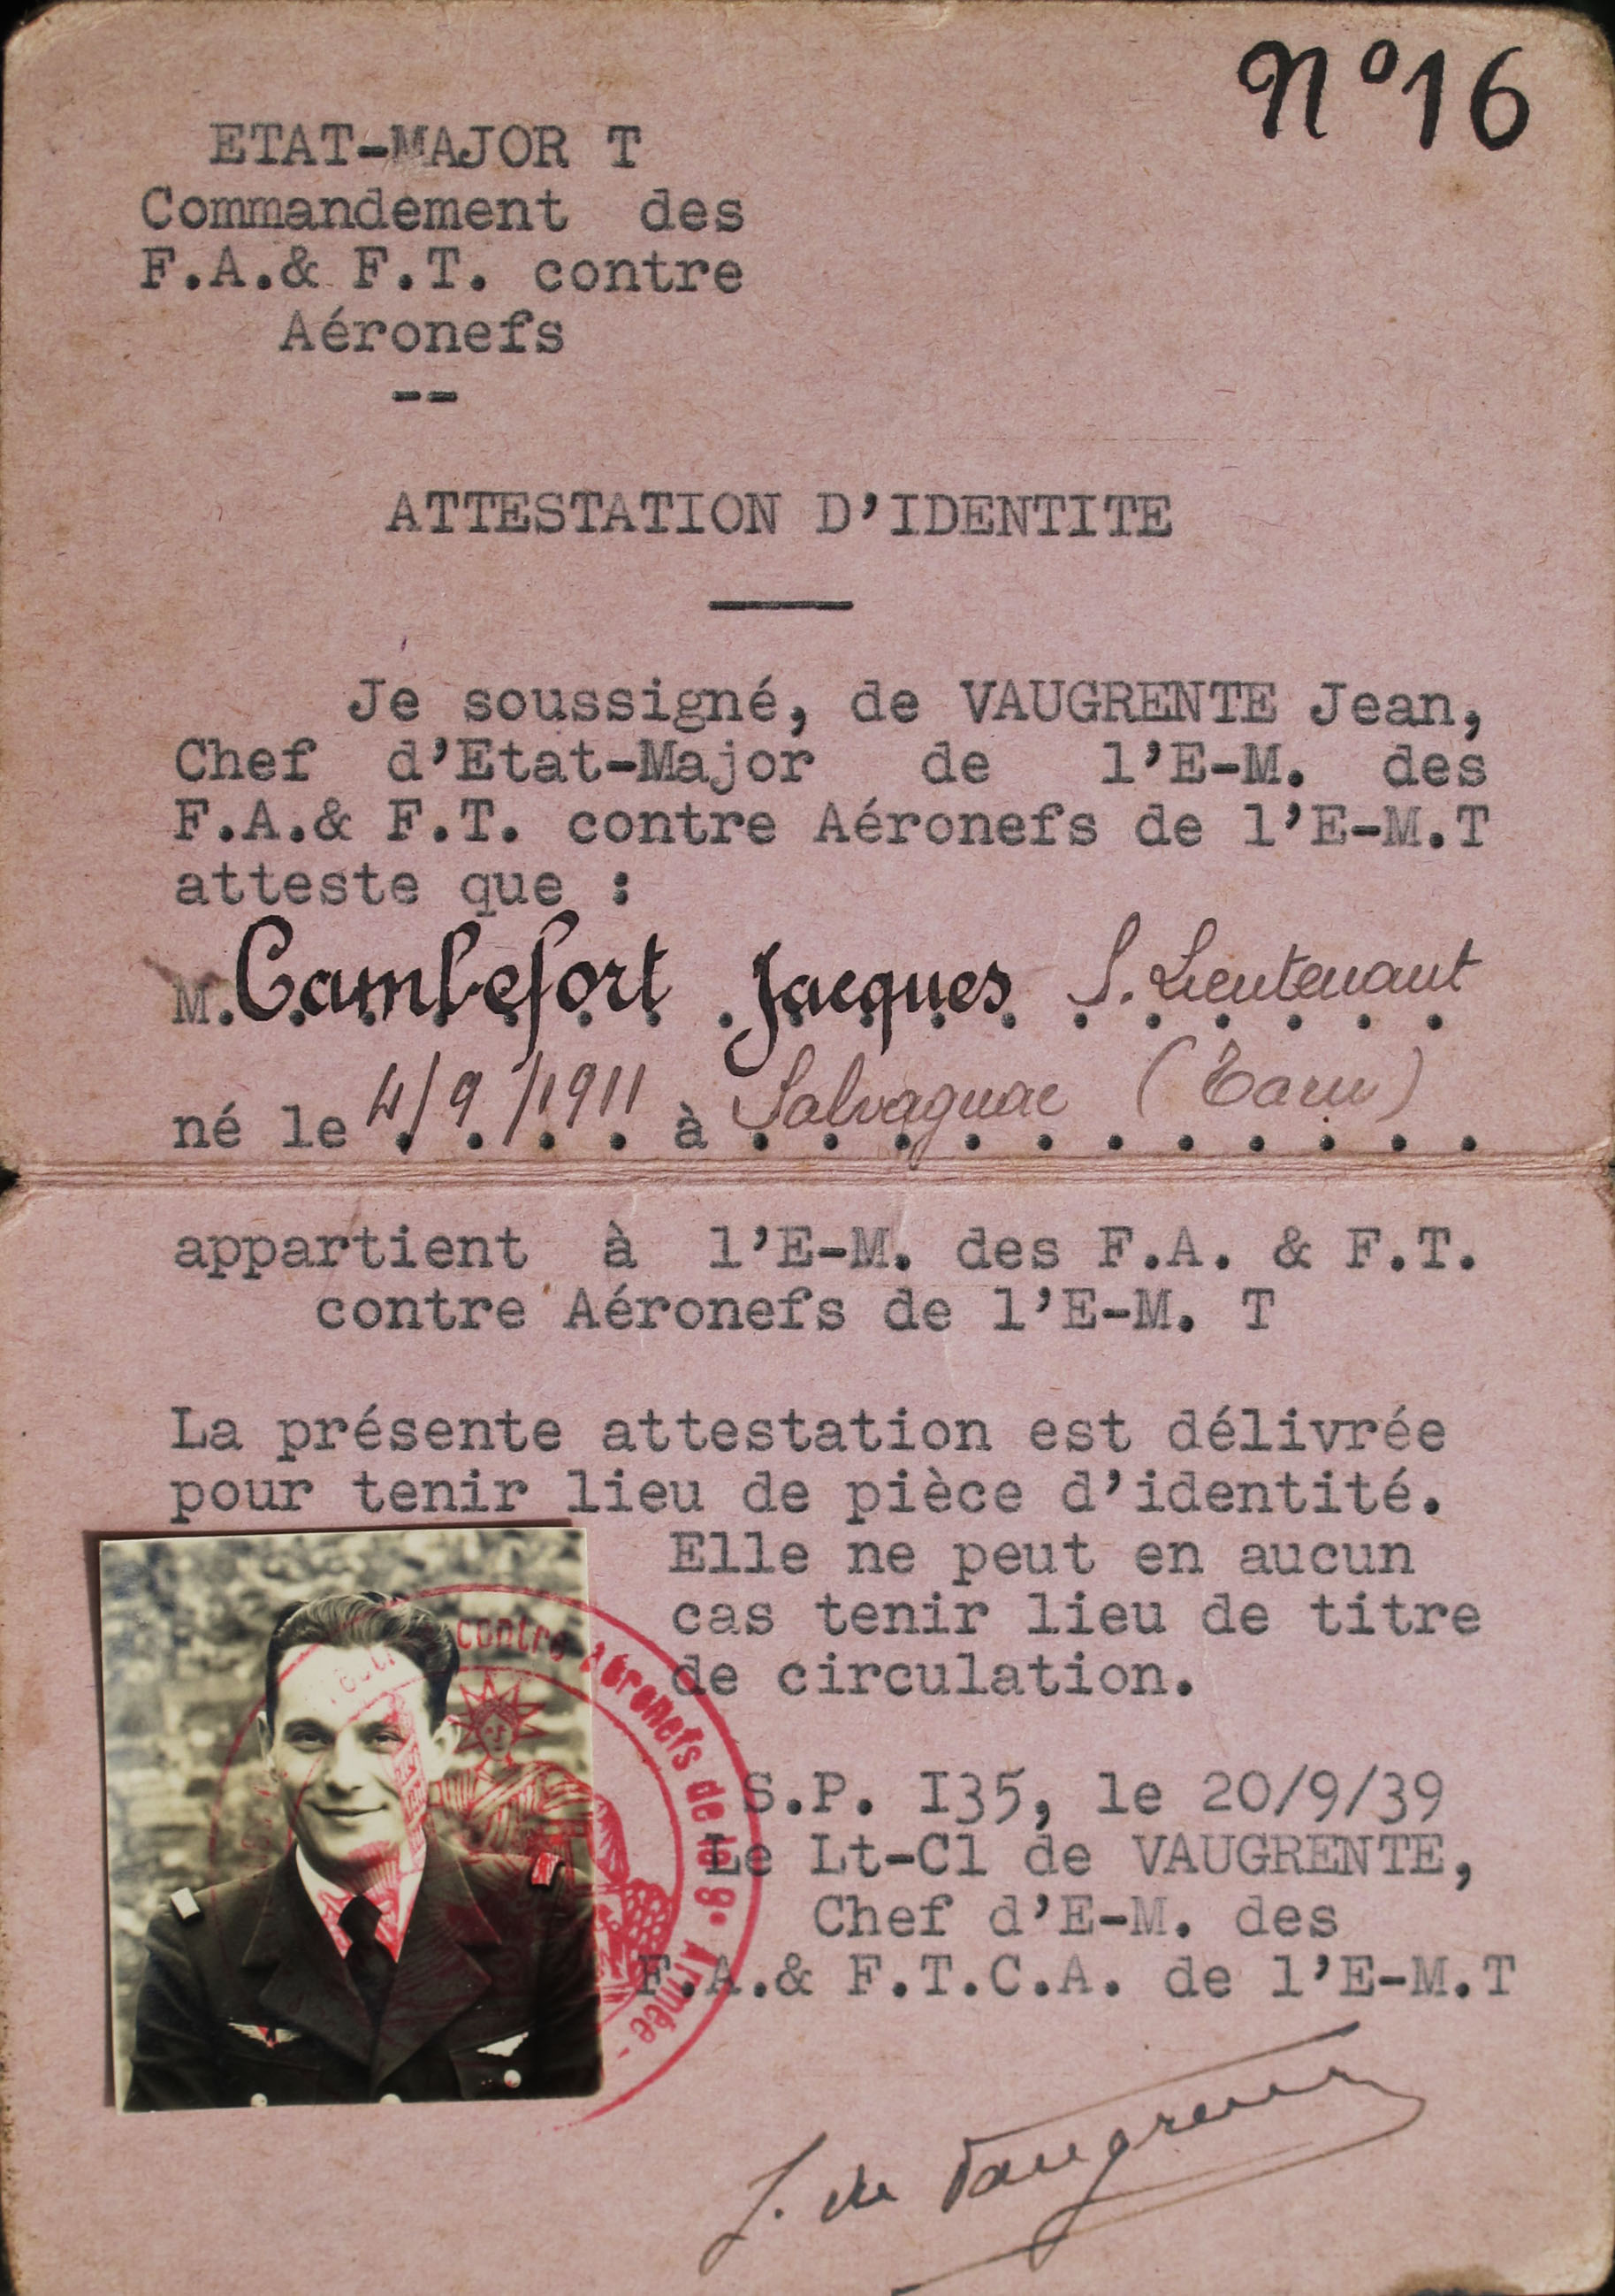 N°16
ETAT-MAJOR T
Commandement des
F.A.& F.T. contre
Aéronefs
--
ATTESTATION D'IDENTITE
Je soussigné, de VAUGRENTE Jean,
Chef d'Etat-Major de l'E-M. des
F.A.& F.T. contre Aéronefs de l'E-M.T
atteste que :
M. Cambefort Jacques S. Lieutenant
né le 4/9/1911 à Salvagnac (Tarn)
appartient à l'E-M. des F.A. & F.T.
contre Aéronefs de l'E-M. T
La présente attestation est délivrée
pour tenir lieu de pièce d'identité.
Elle ne peut en aucun
cas tenir lieu de titre
de circulation.
contre aéronefs de la 9e Armée -
S.P. I35, le 20/9/39
Le Lt-Cl de VAUGRENTE,
Chef d'E-M. des
F.A.& F.T.C.A. de l'E-M.T
J. de Vaugrente